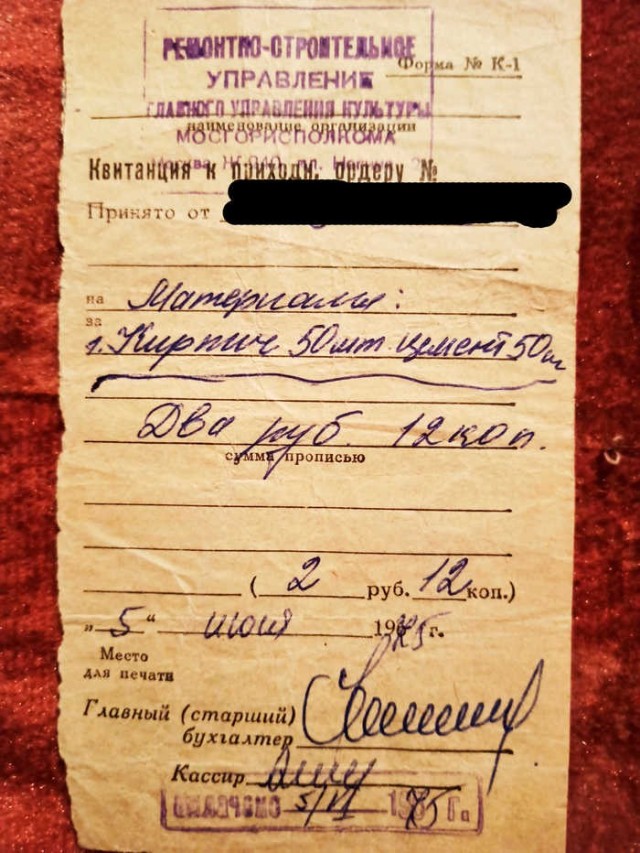 РЕМОНТНО-СТРОИТЕЛЬНОЕ
УПРАВЛЕНИЕ
Форма № К-1
ГЛАВНОГО УПРАВЛЕНИЯ КУЛЬТУРЫ
наименование организации
МОСГОРИСПОЛКОМА
Москва
Квитанция к приходн. ордеру №
Принято от
на Материалы:
за
1. Кирпич 50шт. цемент 50кг
Два руб. 12 коп.
сумма прописью
( 2 руб. 12 коп.)
„ 5 “ июня 1975 г.
Место
для печати
Главный (старший)
бухгалтер
Кассир
5/VI 1975 г.